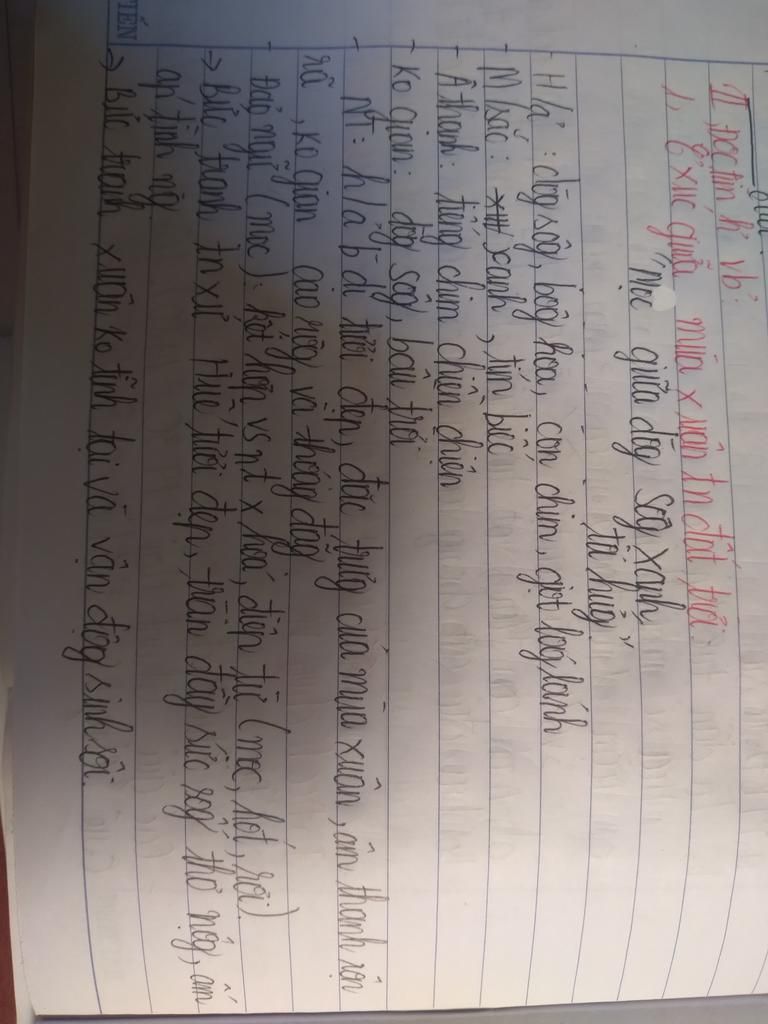 II Đọc tìm h' vb:
1, C'xúc giữa mùa xuân tn đất trời
"mọc giữa dòg sôg xanh
tả hữg"
- H/ả : dòg sôg, bôg hoa, con chim, giọt loglánh
- M/sắc: xanh, tím biếc
- Âthanh: tiếng chim chiền chiện
- Ko gian: dòg sôg, bầu trời
- NT: h/ả b' dị tươi đẹp, đặc trưg của mùa xuân, âm thanh rộn
rã, ko gian cao rộg và thoág đãg
- Đảo ngữ (mọc): kết hợp vs nt x hoá, điệp từ (mọc, hót, rơi)
→ Bức tranh tn xứ Huế tươi đẹp, tràn đầy sức sốg thơ mộg, ấm
áp tình ng
→ Bức tranh xuân ko tĩnh tại và vận độg sinh sôi.
TIẾN